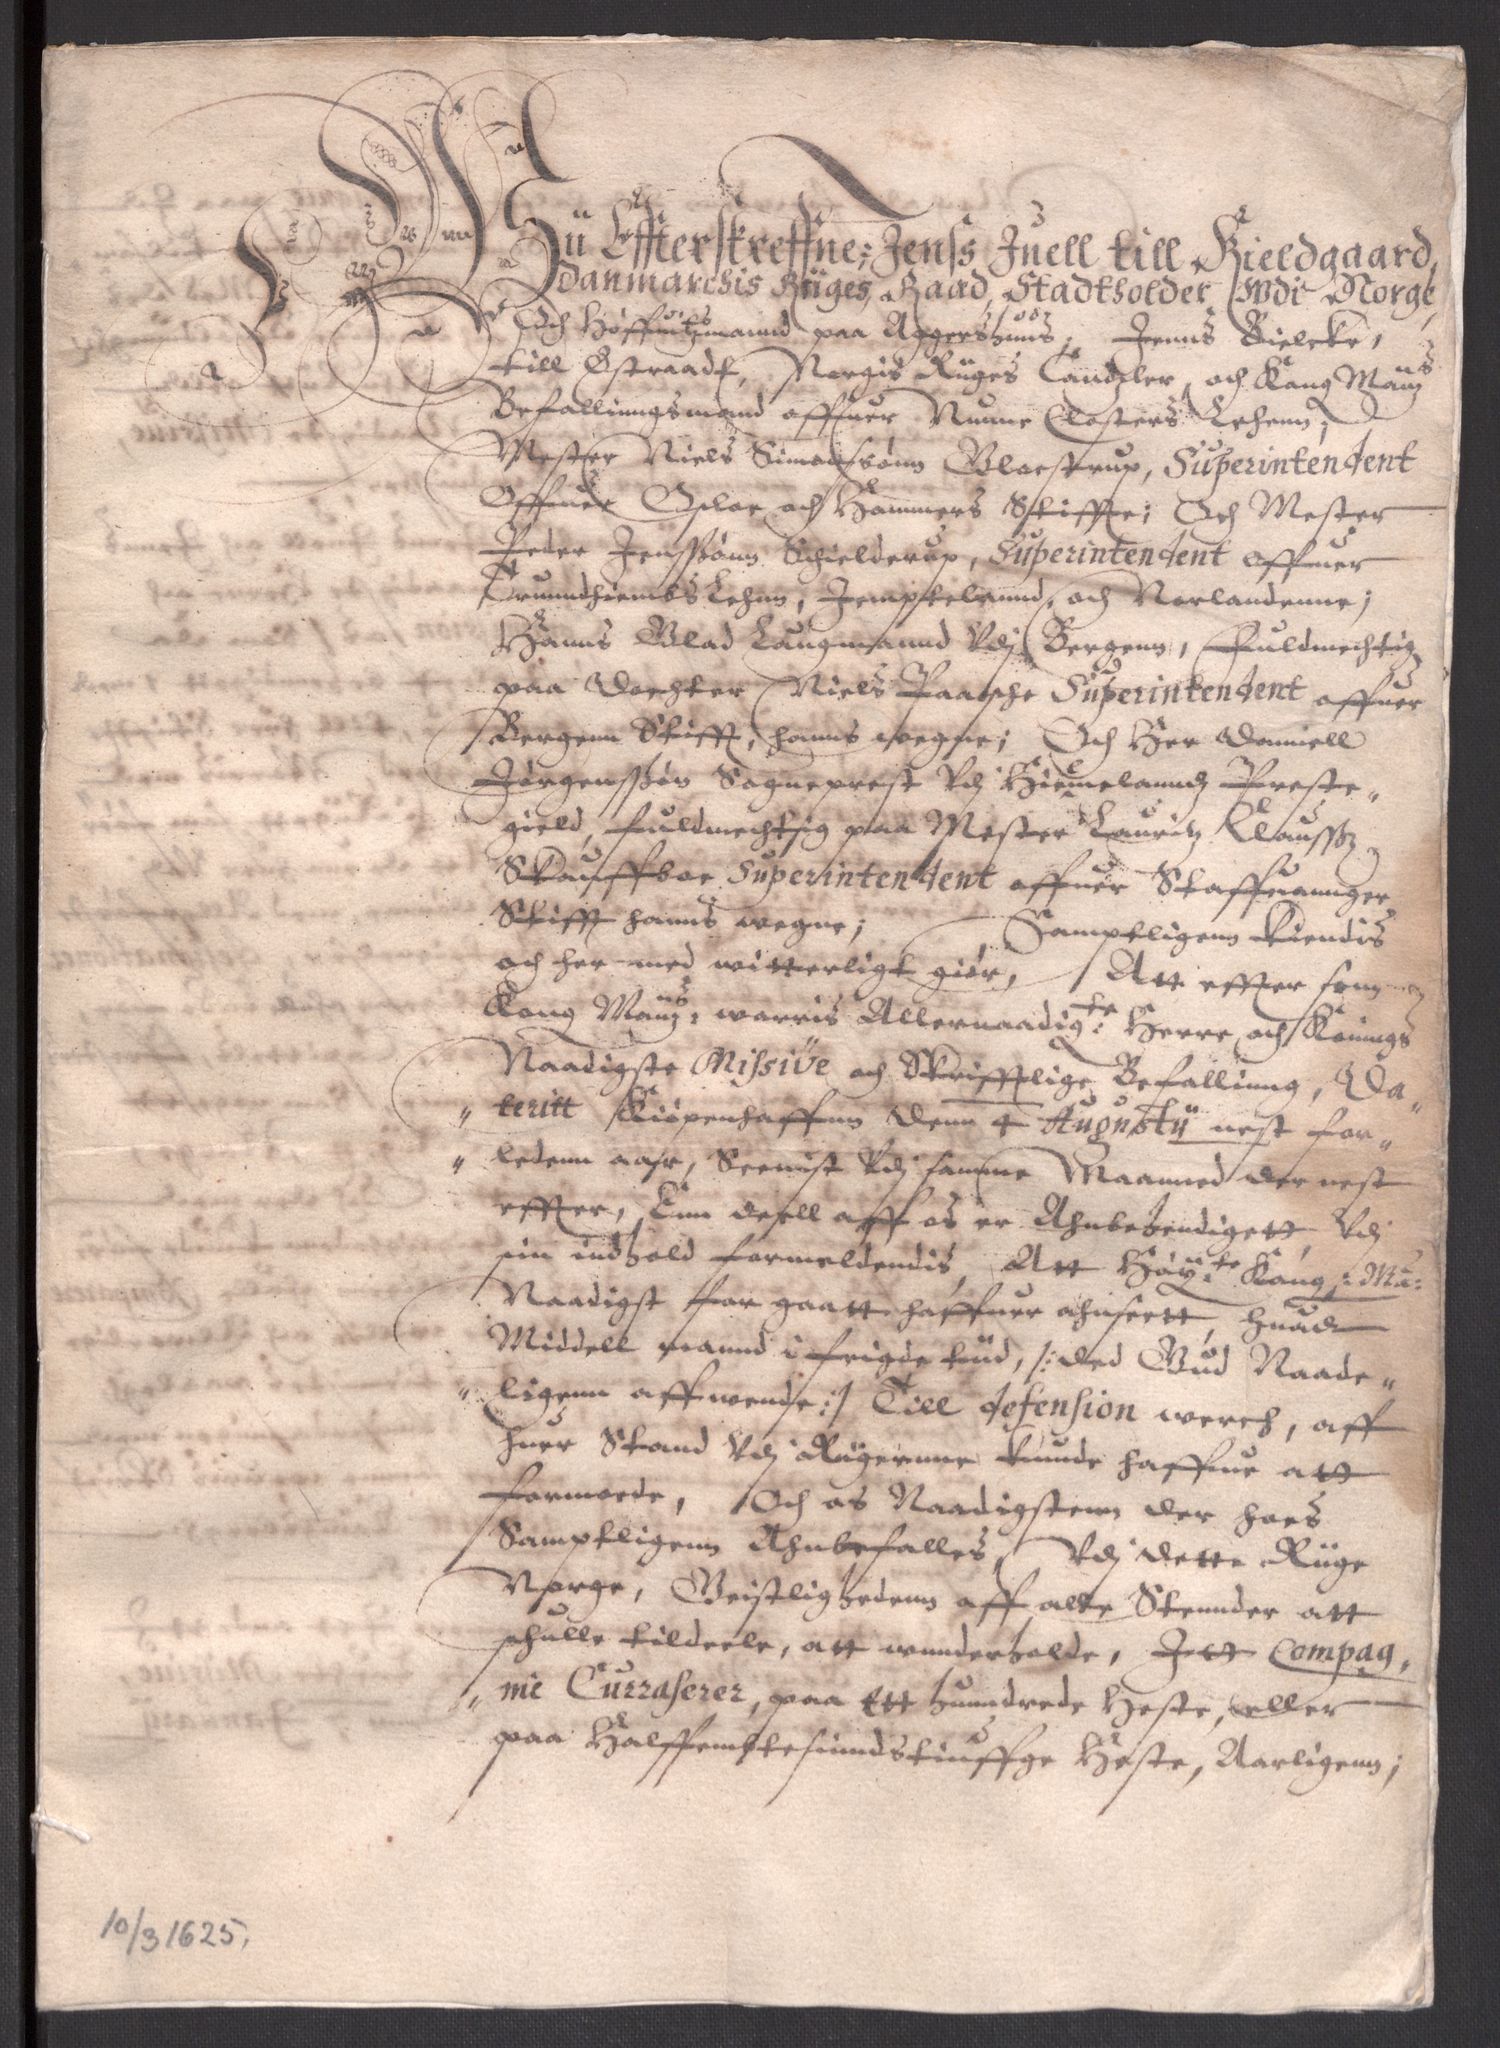 Wii Effterskreffne; Jenss Juell till Kieldgaard,
Danmarchis Riiges Raad, Stadtholder wdi Norge,
Och Höffuitzmannd paa Aggershuus; Jenns Bielcke,
till Østraadt, Norgis Riiges Cantzler, och Kong: Maytz
Befallinngsmand offuer Nunne Closters Lehenn;
Mester Niels Simonssønn Glostrup, Superintendent
Offuer Opsloe och Hammers Stiffte; Och Mester
Peder Jenssønn Schielderup, Superintendent offuer
Trunndhiembs Lehnn, Jempteland, och Norlandenne;
Hanns Glad Laugmannd Vdj Bergenn, Fuldmechtig
paa Dochter Niels Paasche Superintendent offuer
Bergenn Stifft, hanns wegne; Och Her Daniell
Jørgenssøn Sogneprest Vdj Hiemelanndz Preste-
gield, fuldmechtig paa Mester Lauritz Claussz
Skauffboe Superintendent offuer Staffuannger
Stifft hanns wegne; Samptligenn kiendis
och her med witterligt giør, Att effter som
Kong: Maytz: worris Allernaadigste Herre och Konings
Naadigste Missive och Skrifftlige Befallinng, Da-
teritt Kiøpenhaffnn denn 4 Augustij nest for-
ledenn aar, Seenist Vdj samme Maanned der nest
effter, Enn deell aff os er Ahnbehendigett, Vdj
sin indhold formeldendis, Att Høyste Kong: Ma:
Naadigst for gaatt haffuer ahnseett, huad
Middell mannd i freigde tiid, /: ded Gud Naade-
ligenn affwende :/ Till defension werch, aff
huer Stand Vdj Riigernne kunde haffue att
formode, Och os Naadigstenn der hoes
Samptligenn Ahnbefalles, Vdj dette Riige
Norge, Geistlighedenn aff alle Stennder att
schulle tildeele, att wnnderholde, Jtt Compag-
nie Currasserer, paa Ett hunndrede Heste, eller
paa Halffemptesinndstiuffge Heste, Aarligenn;
10/3 1625.